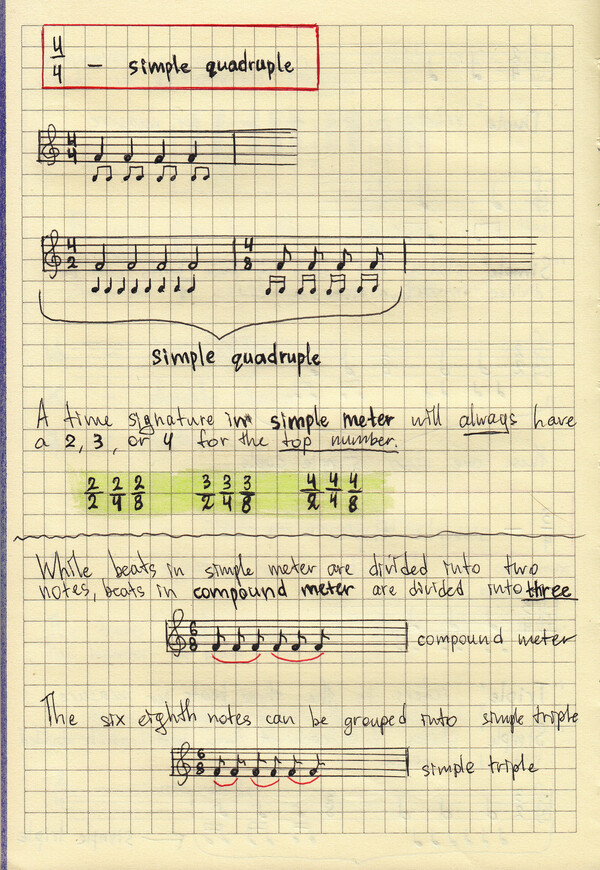 4/4 – simple quadruple
4/4
4/2 4/8
simple quadruple
A time signature in simple meter will always have
a 2, 3, or 4 for the top number.
2/2 2/4 2/8 3/2 3/4 3/8 4/2 4/4 4/8
While beats in simple meter are divided into two
notes, beats in compound meter are divided into three
6/8 compound meter
The six eighth notes can be grouped into simple triple
6/8 simple triple